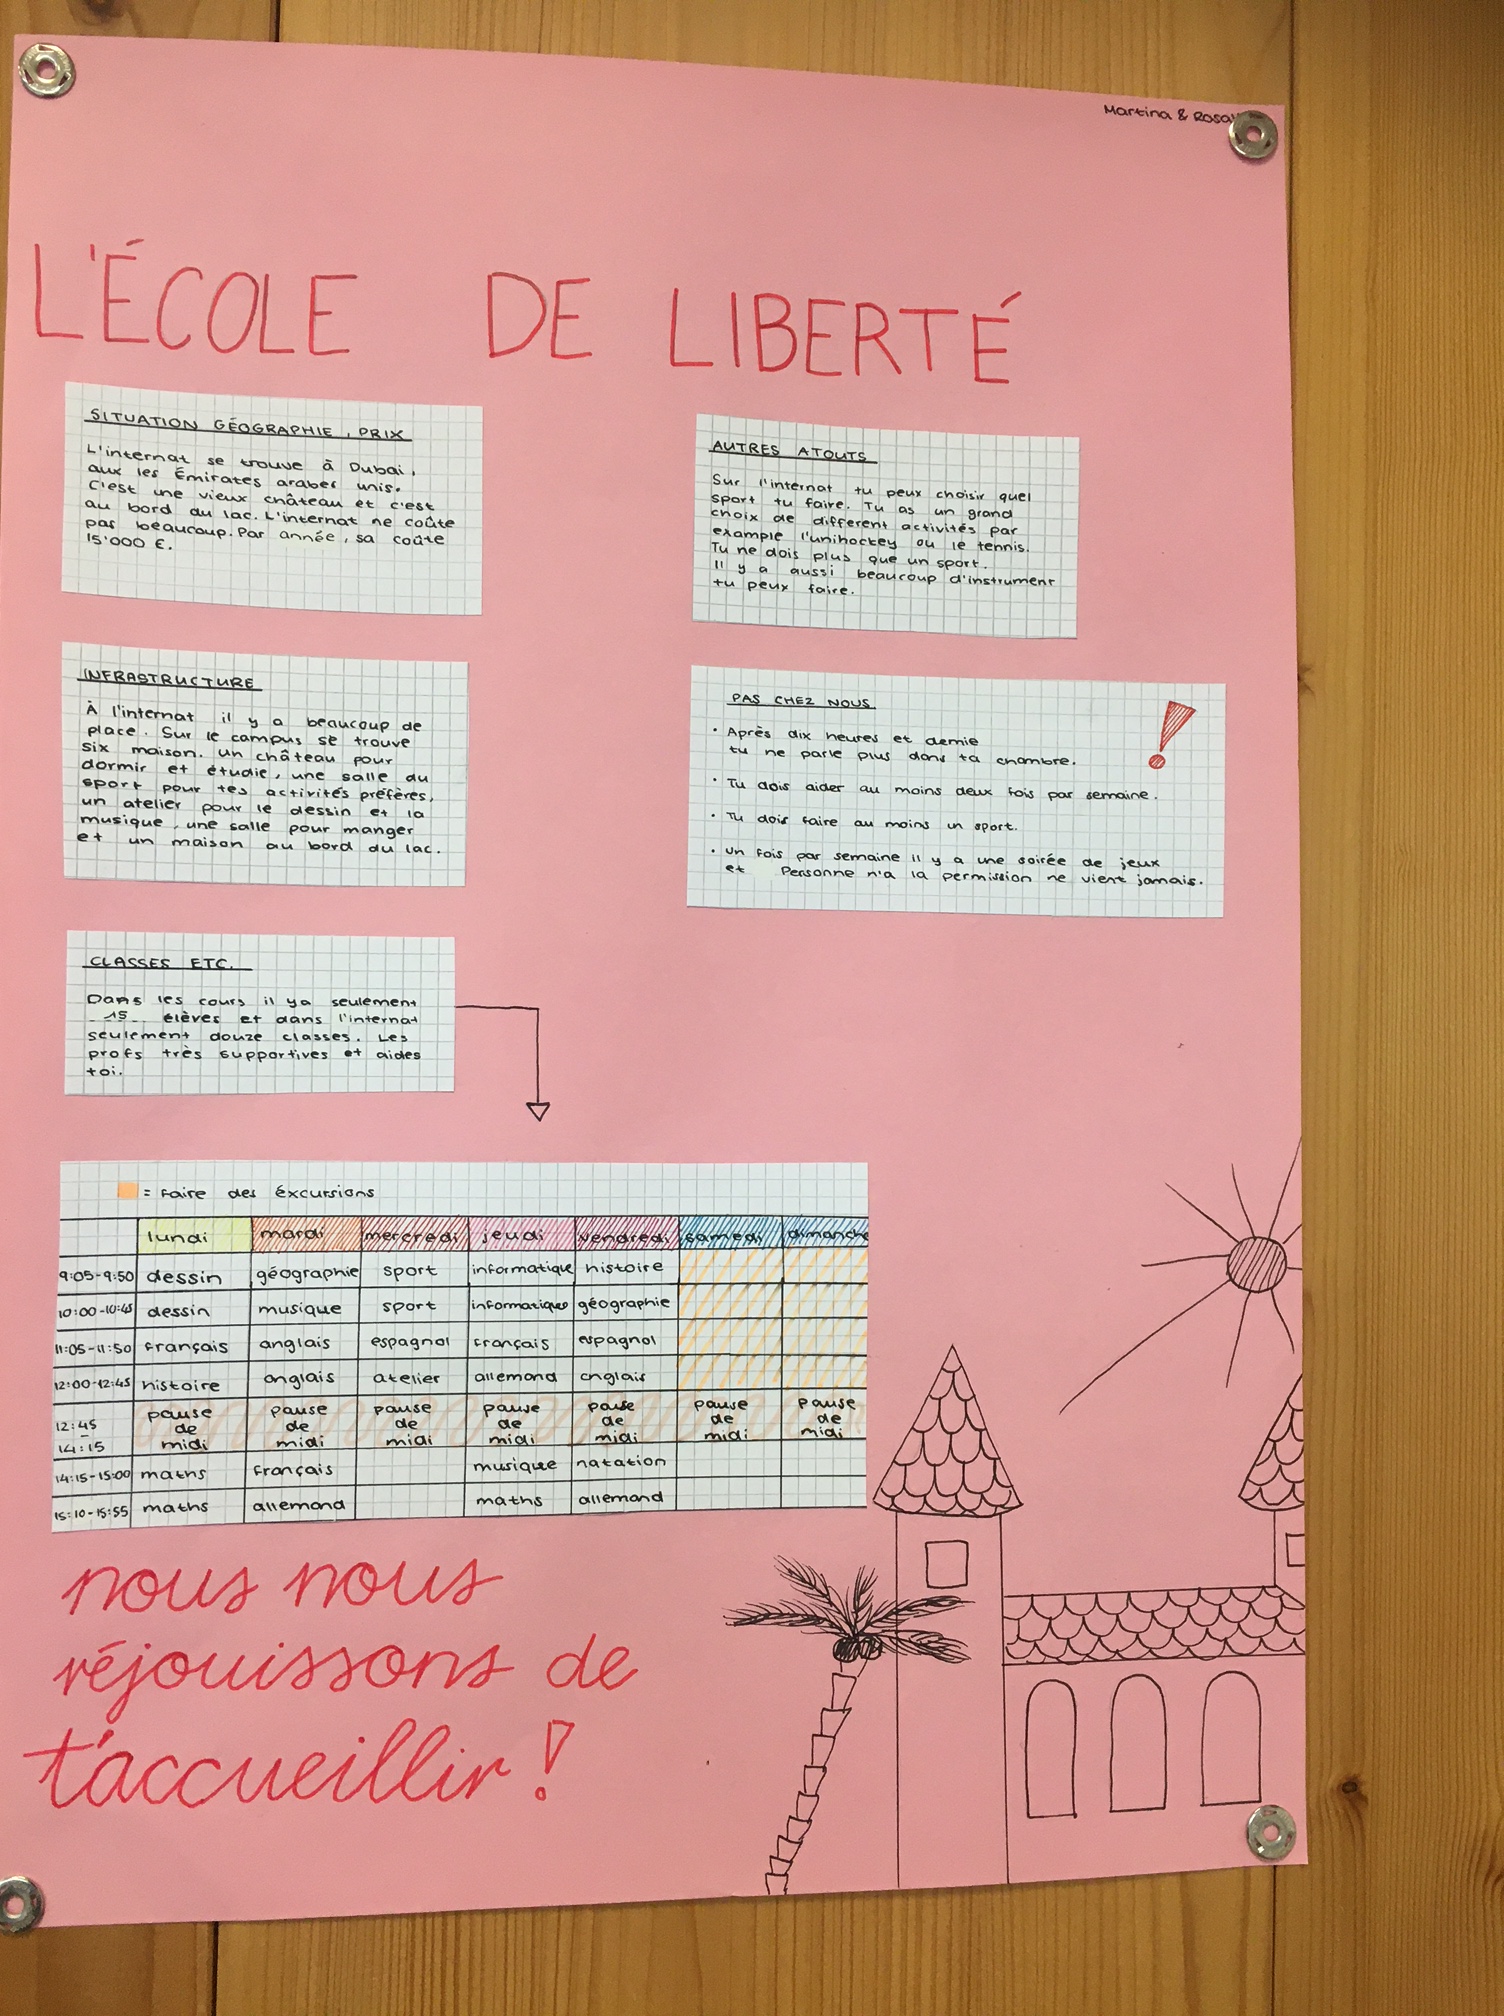 Martina &
L'ÉCOLE DE LIBERTÉ
SITUATION GÉOGRAPHIE, PRIX
L'internat se trouve à Dubai,
aux les Émirates arabes unis.
C'est une vieux château et c'est
au bord du lac. L'internat ne coûte
pas beaucoup. Par année, sa coûte
15'000 €.
INFRASTRUCTURE
À l'internat il y a beaucoup de
place. Sur le campus se trouve
six maison. un château pour
dormir et étudie, une salle du
sport pour tes activités préfères,
un atelier pour le dessin et la
musique, une salle pour manger
et un maison au bord du lac.
CLASSES ETC.
Dans les cours il ya seulement
15 élèves et dans l'internat
seulement douze classes. Les
profs très supportives et aides
toi.
AUTRES ATOUTS
Sur l'internat tu peux choisir quel
sport tu faire. Tu as un grand
choix de different activités par
example l'unihockey ou le tennis.
Tu ne dois plus que un sport.
Il y a aussi beaucoup d'instrument
tu peux faire.
PAS CHEZ NOUS
• Après dix heures et demie
tu ne parle plus dans ta chambre.
• Tu dois aider au moins deux fois par semaine.
• Tu dois faire au moins un sport.
• Un fois par semaine il y a une soirée de jeux
et Personne n'a la permission ne vient jamais.
= faire des éxcursions
lundi mardi mercredi jeudi vendredi samedi dimanche
9:05-9:50 dessin géographie sport informatique histoire
10:00-10:45 dessin musique sport informatique géographie
11:05-11:50 français anglais espagnol français espagnol
12:00-12:45 histoire anglais atelier allemand anglais
pause pause pause pause pause pause pause
12:45 de de de de de de de
- 14:15 midi midi midi midi midi midi midi
14:15-15:00 maths français musique natation
15:10-15:55 maths allemand maths allemand
nous nous
réjouissons de
t'accueillir !